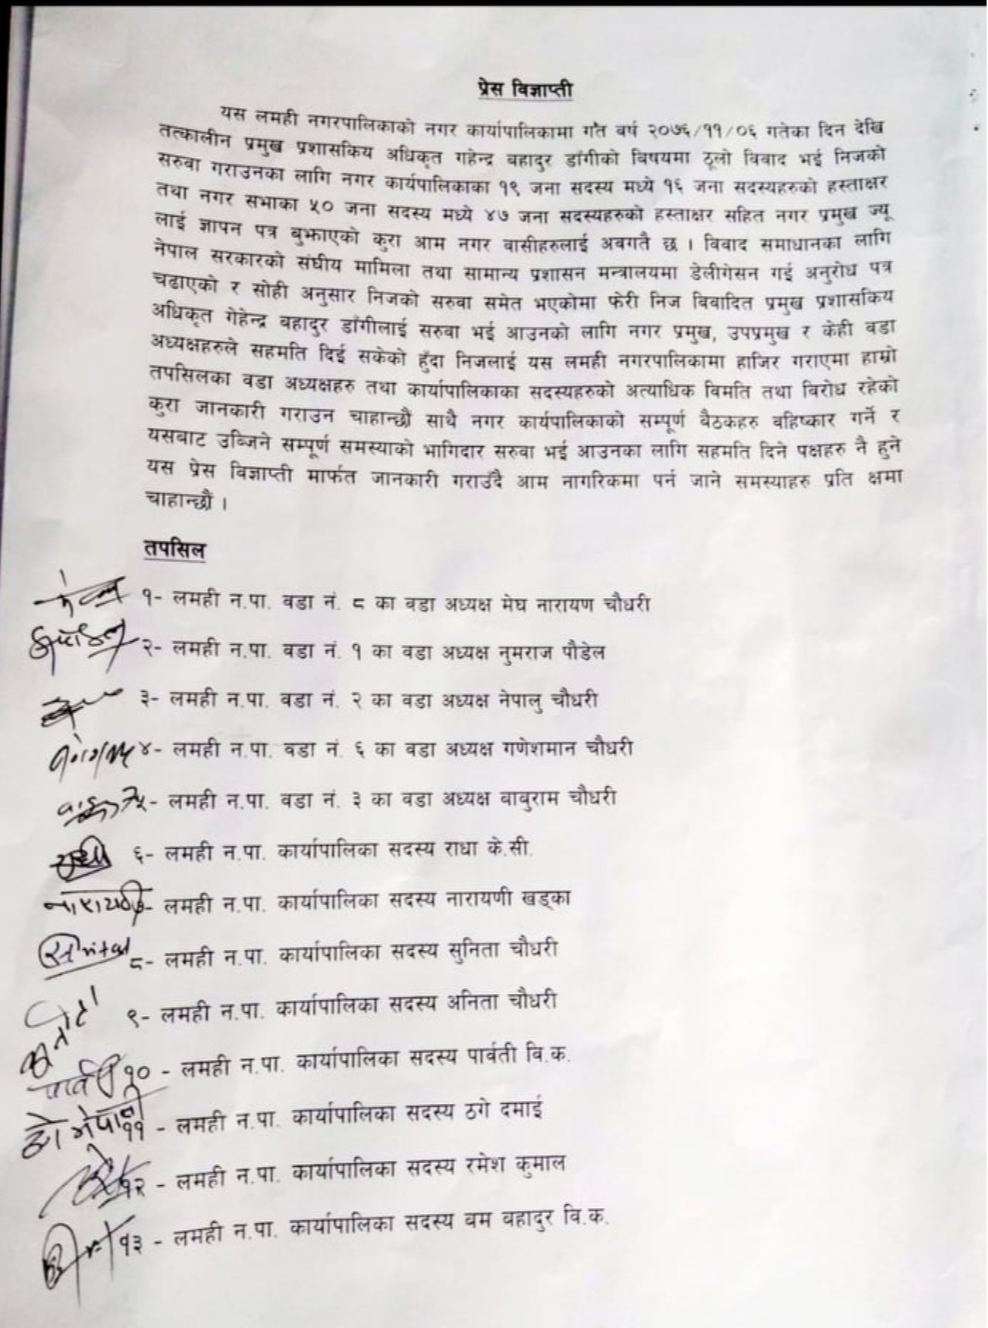 प्रेस विज्ञाप्ती
यस लमही नगरपालिकाको नगर कार्यापालिकामा गत बर्ष २०७६/११/०६ गतेका दिन देखि
तत्कालीन प्रमुख प्रशासकिय अधिकृत गहेन्द्र बहादुर डाँगीको बिषयमा ठूलो विवाद भई निजको
सरुवा गराउनका लागि नगर कार्यपालिकाका १९ जना सदस्य मध्ये १६ जना सदस्यहरुको हस्ताक्षर
तथा नगर सभाका ५० जना सदस्य मध्ये ४७ जना सदस्यहरुको हस्ताक्षर सहित नगर प्रमुख ज्यू
लाई ज्ञापन पत्र बुझाएको कुरा आम नगर बासीहरुलाई अवगतै छ । विवाद समाधानका लागि
नेपाल सरकारको संघीय मामिला तथा सामान्य प्रशासन मन्त्रालयमा डेलीगेसन गई अनुरोध पत्र
चढाएको र सोही अनुसार निजको सरुवा समेत भएकोमा फेरी निज विवादित प्रमुख प्रशासकिय
अधिकृत गेहेन्द्र बहादुर डाँगीलाई सरुवा भई आउनको लागि नगर प्रमुख, उपप्रमुख र केही वडा
अध्यक्षहरुले सहमति दिई सकेको हुँदा निजलाई यस लमही नगरपालिकामा हाजिर गराएमा हाम्रो
तपसिलका वडा अध्यक्षहरु तथा कार्यापालिकाका सदस्यहरुको अत्याधिक विमति तथा विरोध रहेको
कुरा जानकारी गराउन चाहान्छौ साथै नगर कार्यपालिकाको सम्पूर्ण बैठकहरु वहिष्कार गर्ने र
यसबाट उब्जिने सम्पूर्ण समस्याको भागिदार सरुवा भई आउनका लागि सहमति दिने पक्षहरु नै हुने
यस प्रेस विज्ञाप्ती मार्फत जानकारी गराउँदै आम नागरिकमा पर्न जाने समस्याहरु प्रति क्षमा
चाहान्छौं ।
तपसिल
१- लमही न.पा. वडा नं. ८ का वडा अध्यक्ष मेघ नारायण चौधरी
२- लमही न.पा. वडा नं. १ का वडा अध्यक्ष नुमराज पौडेल
३- लमही न.पा. वडा नं. २ का वडा अध्यक्ष नेपालु चौधरी
४- लमही न.पा. वडा नं. ६ का वडा अध्यक्ष गणेशमान चौधरी
५- लमही न.पा. वडा नं. ३ का वडा अध्यक्ष वाबुराम चौधरी
६- लमही न.पा. कार्यापालिका सदस्य राधा के.सी.
७- लमही न.पा. कार्यापालिका सदस्य नारायणी खड्का
८- लमही न.पा. कार्यापालिका सदस्य सुनिता चौधरी
९- लमही न.पा. कार्यापालिका सदस्य अनिता चौधरी
१० - लमही न.पा. कार्यापालिका सदस्य पार्वती वि.क.
११ - लमही न.पा. कार्यापालिका सदस्य ठगे दमाई
१२ - लमही न.पा. कार्यापालिका सदस्य रमेश कुमाल
१३ - लमही न.पा. कार्यापालिका सदस्य बम बहादुर वि.क.